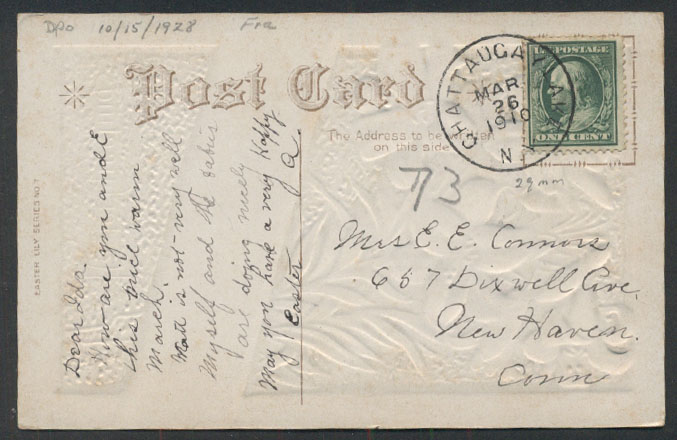 DPO 10/15/1928 Fra
Post Card
The Address to be written
on this side
EASTER LILY SERIES NO. 7
CHATTAUGAY LAKE
MAR
26
1910
N.Y.
U.S. POSTAGE
ONE CENT
29 mm
73
Mrs E. E. Connors
657 Dixwell Ave.
New Haven.
Conn
Dear Ida.
How are you and E
this nice warm
March.
Matt is not very well
Myself and the babies
are doing nicely
May you have a very Happy
Easter
A.